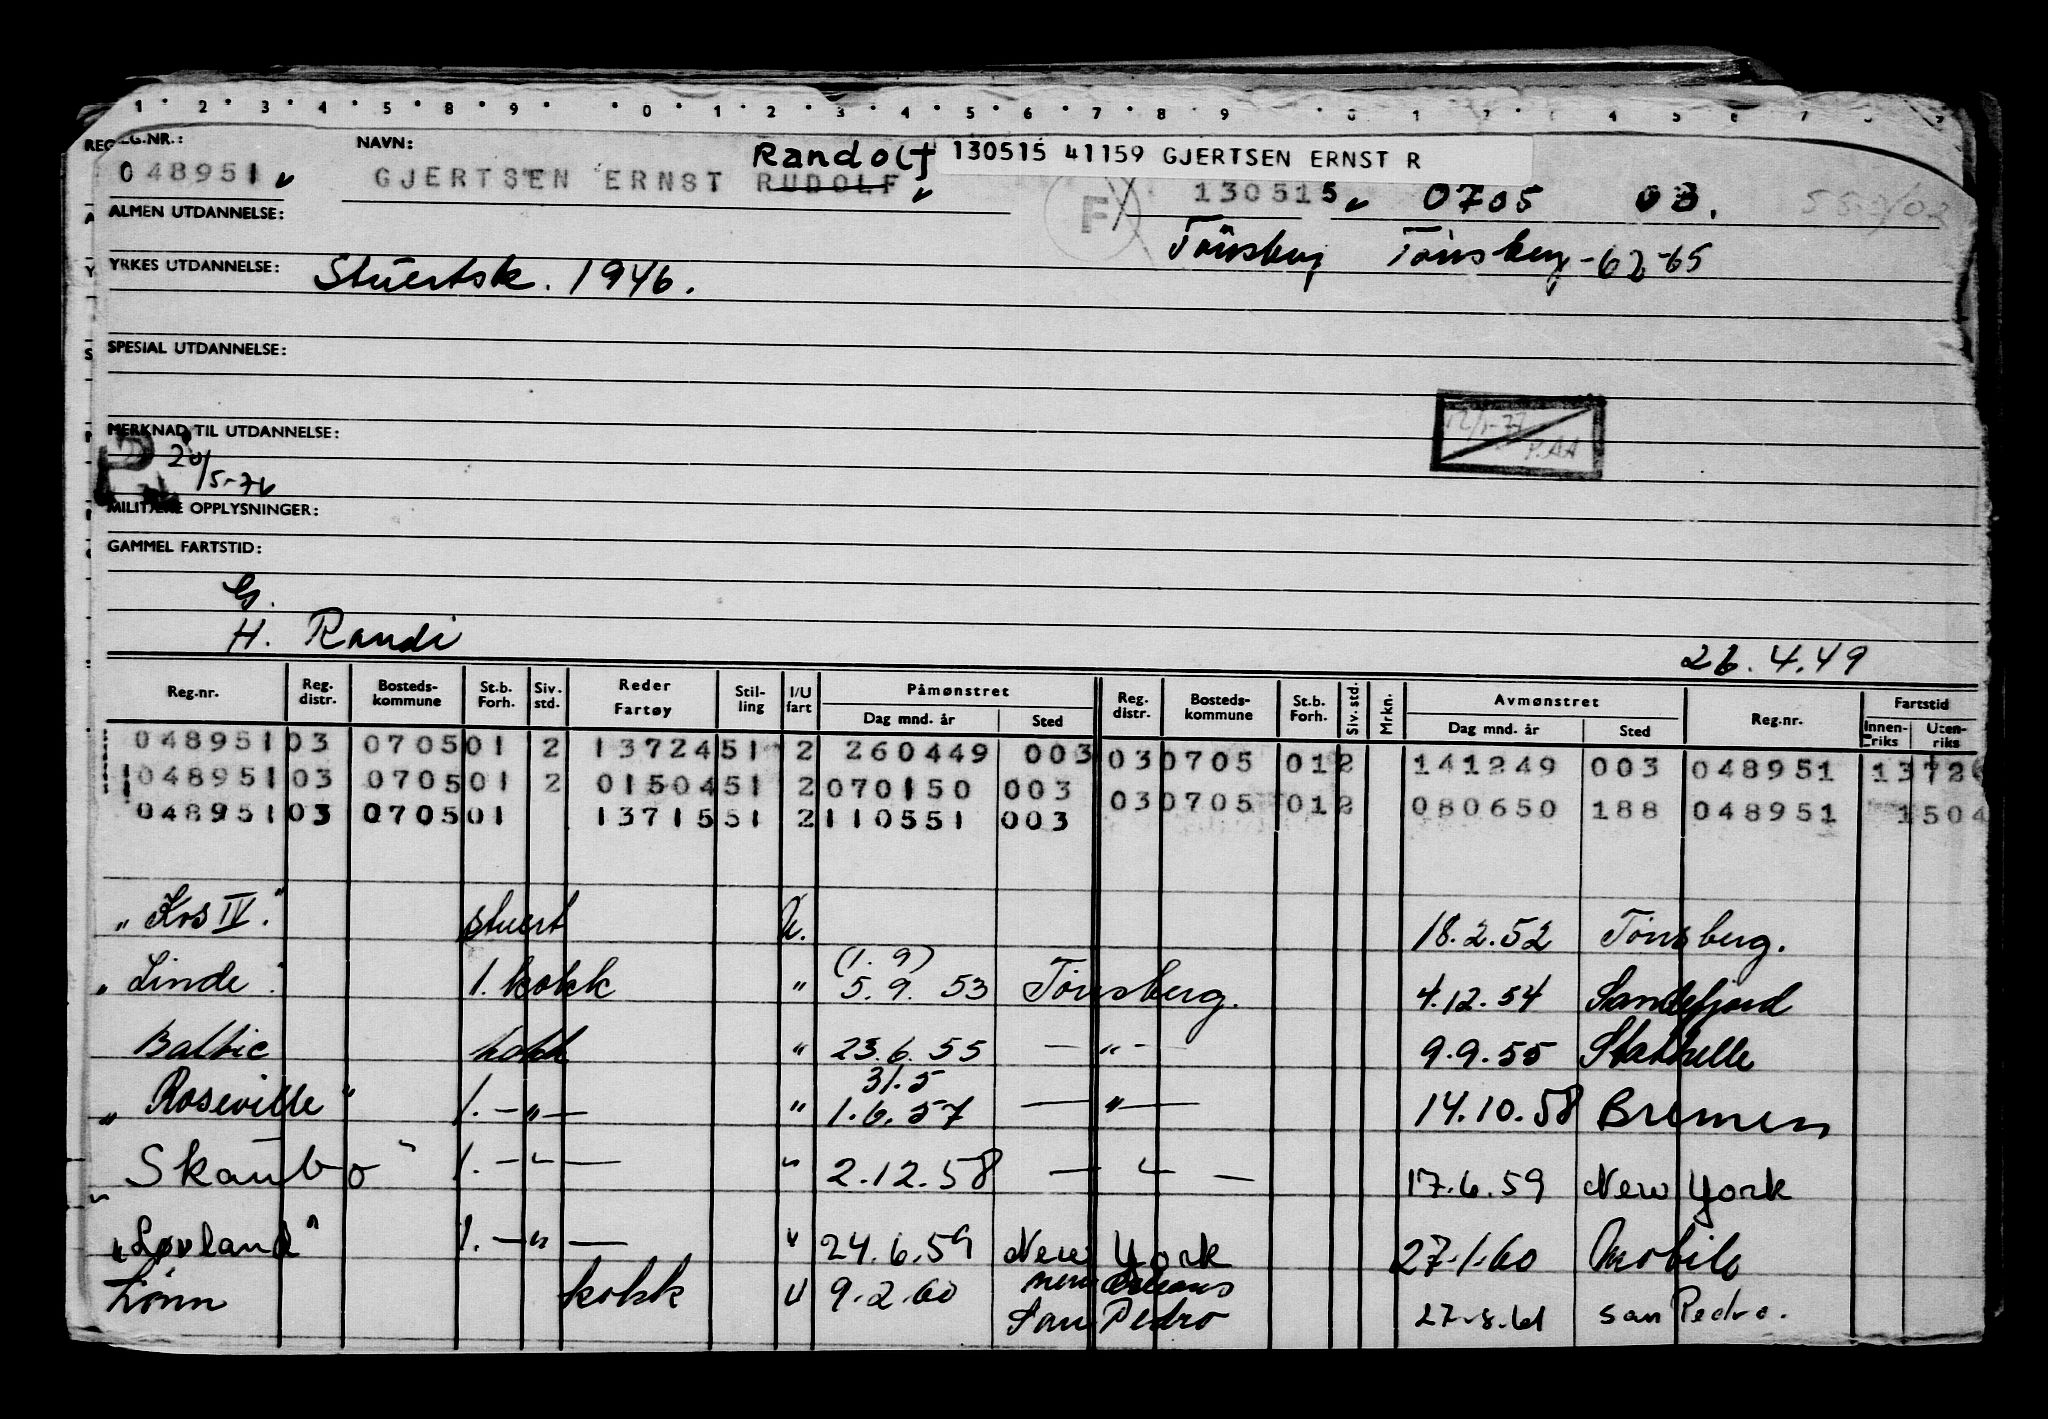 1 2 3 4 5 8 9 0 1 2 3 4 5 6 7 8 9 0 1 2 3 4 5 6 7 8
REG.NR.: NAVN: Randolf 130515 41159 GJERTSEN ERNST R
048951 GJERTSEN ERNST RUDOLF F 130515 0705 03.
ALMEN UTDANNELSE: Tönsberg Tönsberg -62-65
YRKES UTDANNELSE: Stuertsk. 1946.
SPESIAL UTDANNELSE:
MERKNAD TIL UTDANNELSE: 12/1-77
P.AA
R 20/5-76
MILITÆRE OPPLYSNINGER:
GAMMEL FARTSTID:
G.
H. Randi 26.4.49
Reg.nr. Reg. distr. Bosteds-kommune St.b. Forh. Siv. std. Reder Fartøy Stil-ling I/U fart Påmønstret Reg. distr. Bosteds-kommune St.b. Forh. Siv. std. Mrkn. Avmønstret Reg.nr. Fartstid
Dag mnd. år Sted Dag mnd. år Sted Innen-riks Uten-riks
048951 03 0705 01 2 13724 51 2 260449 003 03 0705 01 2 141249 003 048951 1372
048951 03 0705 01 2 01504 51 2 070150 003 03 0705 01 2 080650 188 048951 1504
048951 03 0705 01 13715 51 2 110551 003
"Kos IV." stuert U. 18.2.52 Tönsberg.
(1.9)
"Linde". 1. kokk " 5.9.53 Tönsberg. 4.12.54 Sandefjord
Baltic kokk " 23.6.55 — " — 9.9.55 Stathelle
31.5
"Roseville" 1. — " — " 1.6.57 — " — 14.10.58 Bremen
"Skaubo" 1. — " — " 2.12.58 — " — 17.6.59 New York
"Lovland" 1. — " — " 24.6.59 New York 27.1.60 Mobile
New Orleans
Lönn kokk U 9.2.60 San Pedro 27.8.61 San Pedro.